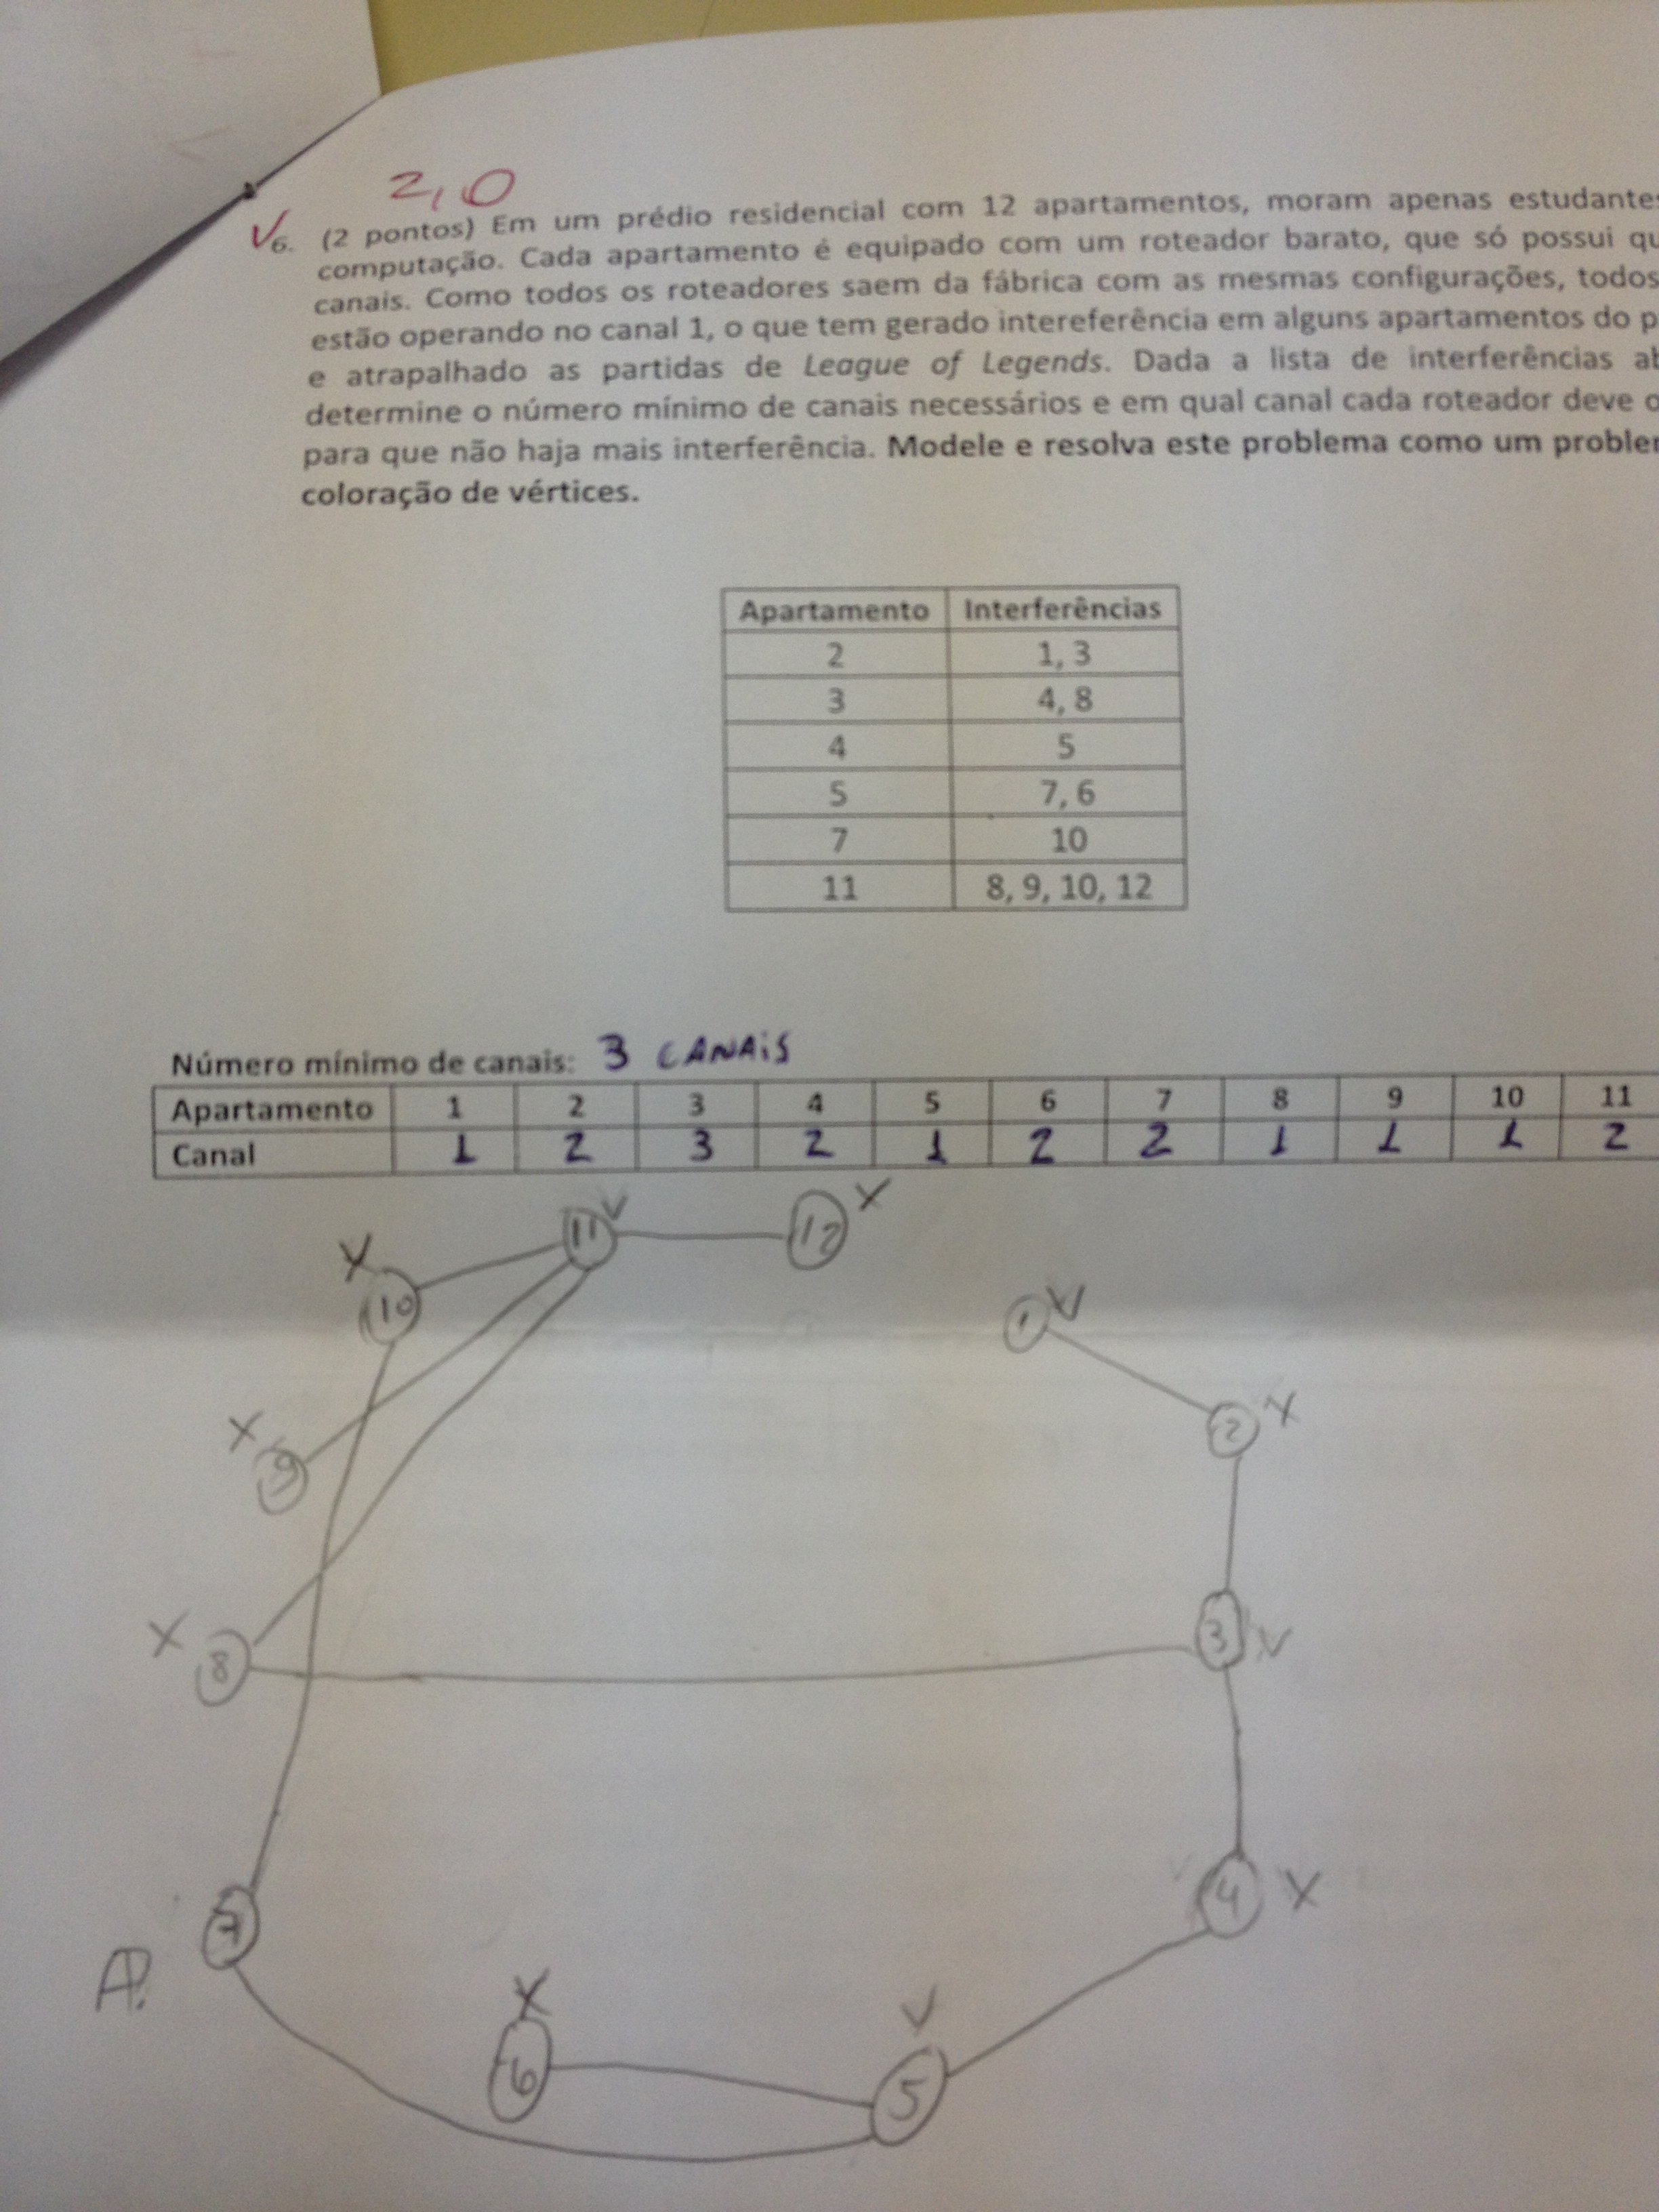 2,0
6. (2 pontos) Em um prédio residencial com 12 apartamentos, moram apenas estudantes
computação. Cada apartamento é equipado com um roteador barato, que só possui qu
canais. Como todos os roteadores saem da fábrica com as mesmas configurações, todos
estão operando no canal 1, o que tem gerado intereferência em alguns apartamentos do p
e atrapalhado as partidas de League of Legends. Dada a lista de interferências ab
determine o número mínimo de canais necessários e em qual canal cada roteador deve o
para que não haja mais interferência. Modele e resolva este problema como um problem
coloração de vértices.
Apartamento Interferências
2 1, 3
3 4, 8
4 5
5 7, 6
7 10
11 8, 9, 10, 12
Número mínimo de canais: 3 CANAiS
Apartamento 1 2 3 4 5 6 7 8 9 10 11
Canal 1 2 3 2 1 2 2 1 1 1 2
11 V 12 X
X 10
1 V
2 X
X 9
3 V
X 8
4 X
7
A?
X 6
V 5